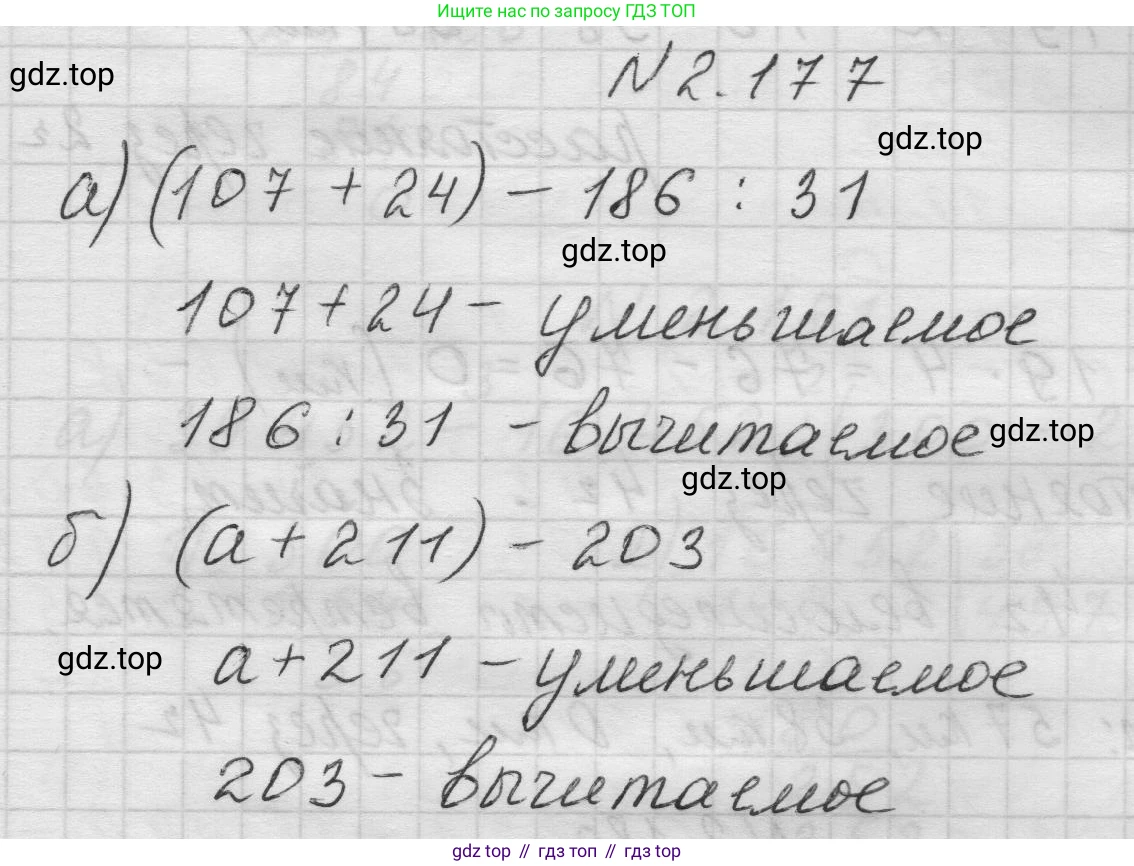 Ищите нас по запросу ГДЗ ТОП
gdz.top
N 2.177
gdz.top
а) (107 + 24) - 186 : 31
gdz.top
107 + 24 - уменьшаемое
186 : 31 - вычитаемое
gdz.top
gdz.top
б) (а + 211) - 203
а + 211 - уменьшаемое
gdz.top
203 - вычитаемое
gdz top // гдз топ // gdz top